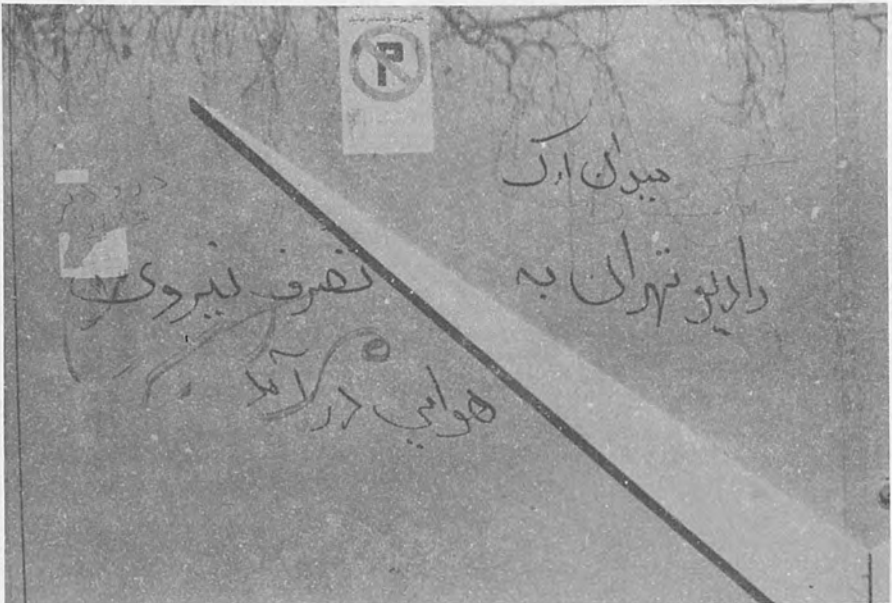 میدان ارک
رادیو تهران به تصرف نیروی
هوایی درآمد